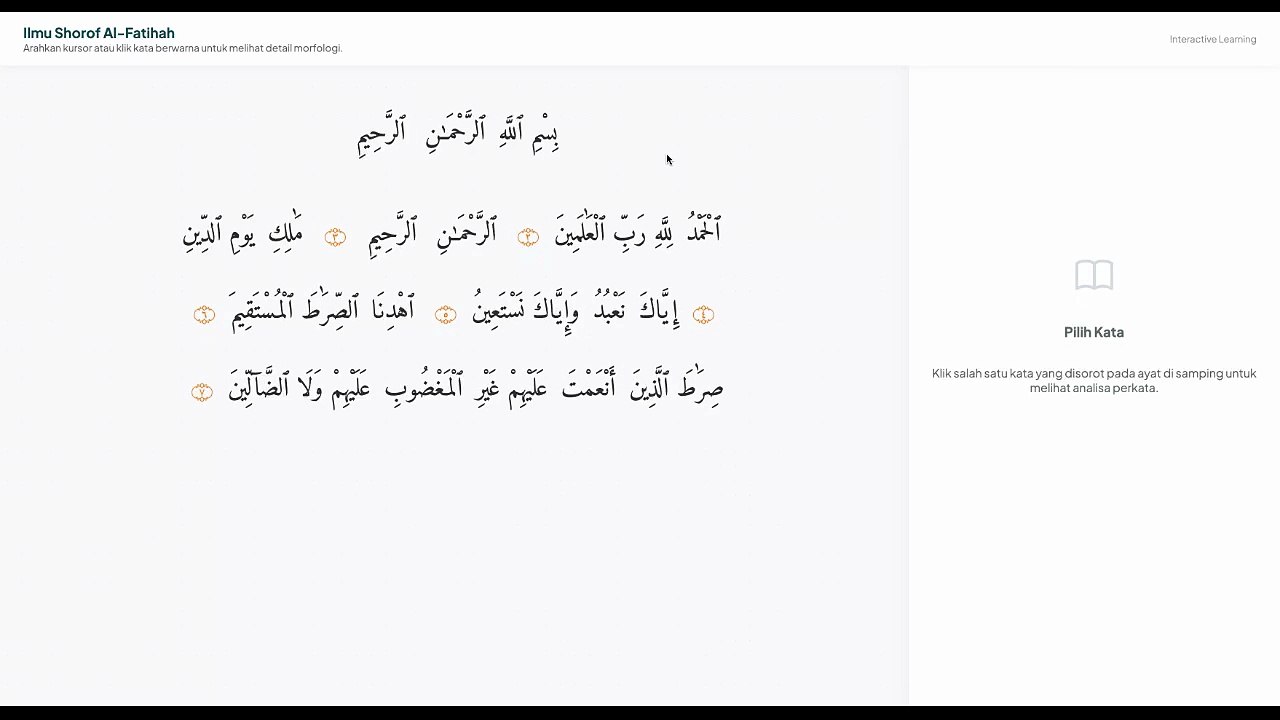 Ilmu Shorof Al-Fatihah
Arahkan kursor atau klik kata berwarna untuk melihat detail morfologi.
Interactive Learning
بِسْمِ ٱللَّهِ ٱلرَّحْمَـٰنِ ٱلرَّحِيمِ
ٱلْحَمْدُ لِلَّهِ رَبِّ ٱلْعَٰلَمِينَ ٢ ٱلرَّحْمَـٰنِ ٱلرَّحِيمِ ٣ مَٰلِكِ يَوْمِ ٱلدِّينِ
٤ إِيَّاكَ نَعْبُدُ وَإِيَّاكَ نَسْتَعِينُ ٥ ٱهْدِنَا ٱلصِّرَٰطَ ٱلْمُسْتَقِيمَ ٦
صِرَٰطَ ٱلَّذِينَ أَنْعَمْتَ عَلَيْهِمْ غَيْرِ ٱلْمَغْضُوبِ عَلَيْهِمْ وَلَا ٱلضَّآلِّينَ ٧
Pilih Kata
Klik salah satu kata yang disorot pada ayat di samping untuk
melihat analisa perkata.